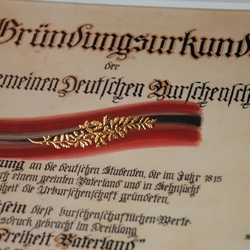 Gründungsurkund
der
emeinen Deutschen Burschensch
ung an die deutschen Studenten, die im Jahr 1815
ch einem geeinten Vaterland und in Sehnsucht
eiheit die Urburschenschaft gründeten.
sem diese burschenschaftlichen Werte
druck gebracht im Dreiklang
Freiheit Vaterland"